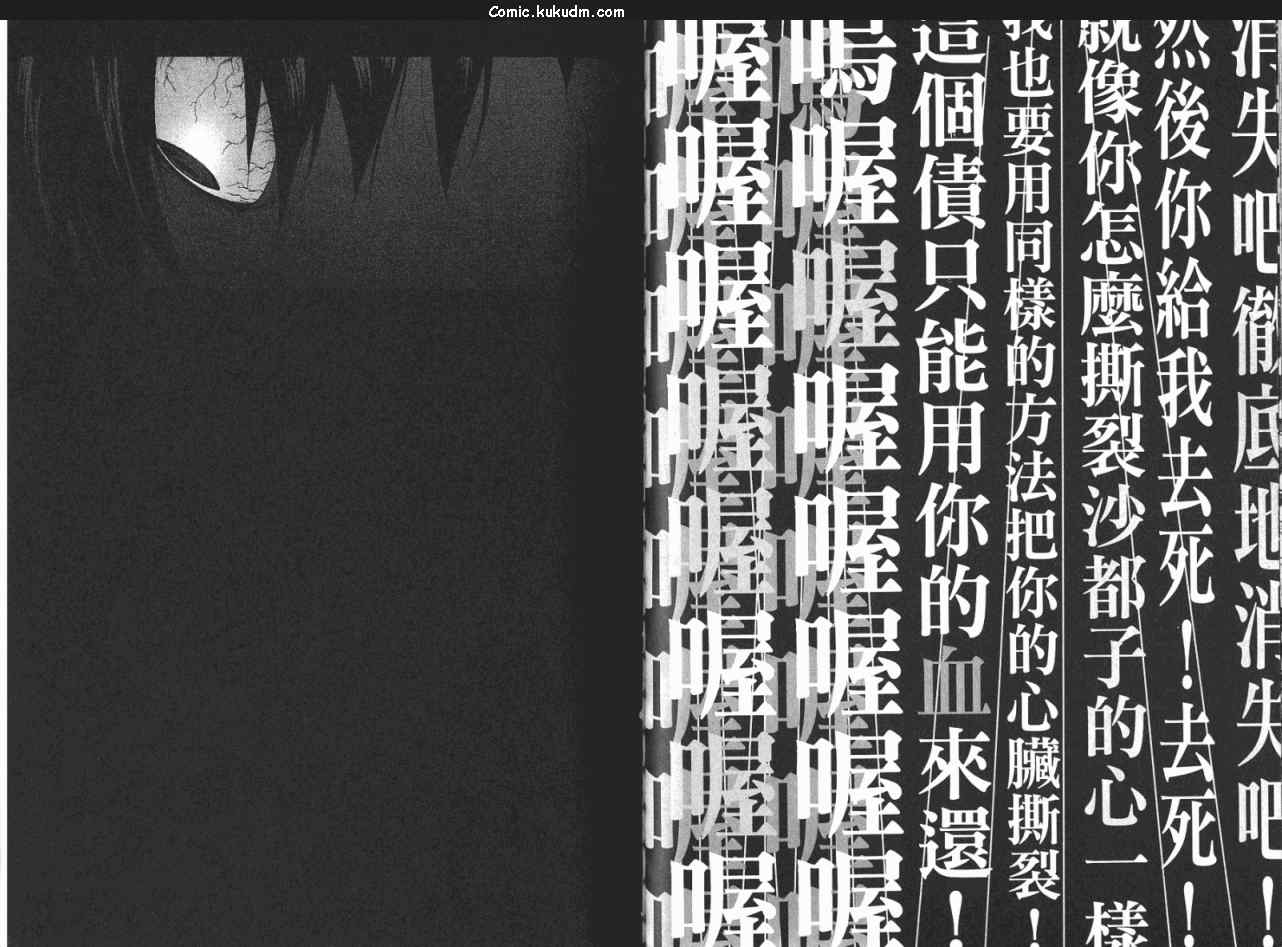 Comic.kukudm.com
消失吧徹底地消失吧！
然後你給我去死！去死！！
就像你怎麼撕裂沙都子的心一樣
我也要用同樣的方法把你的心臟撕裂！
這個債只能用你的血來還！
嗚喔喔喔喔喔喔喔
喔喔喔喔喔喔喔喔